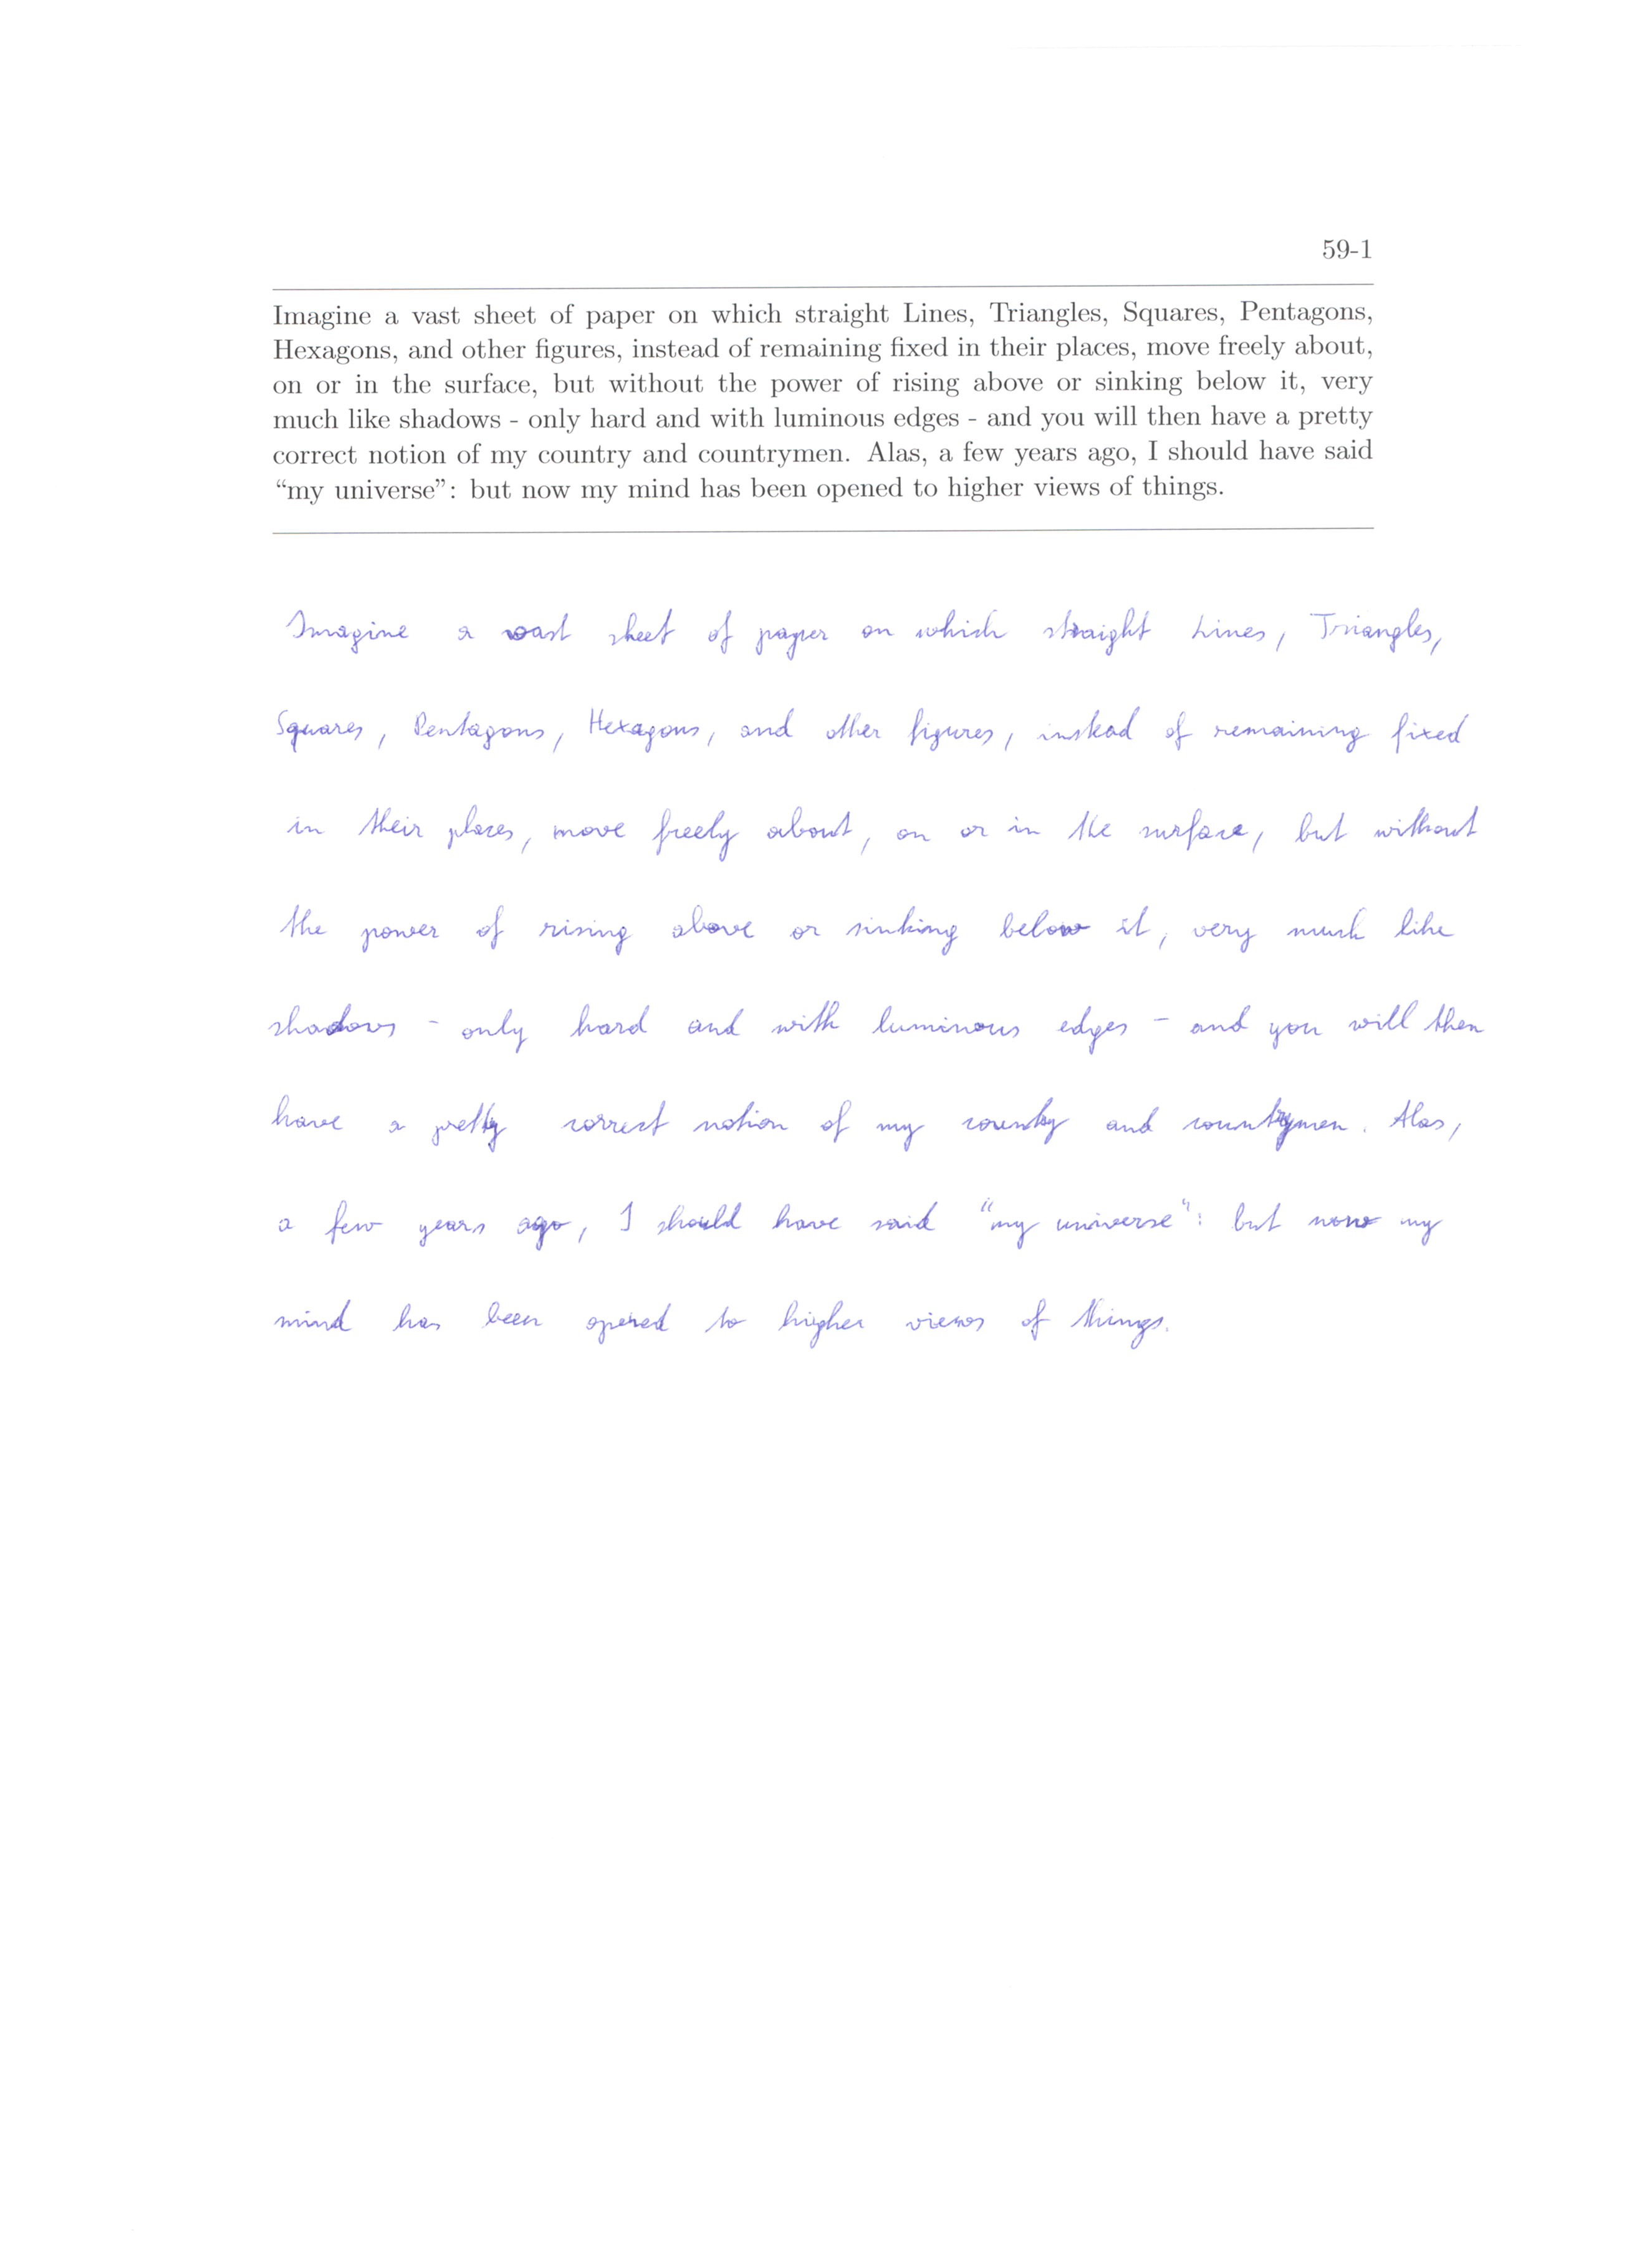 59-1
Imagine a vast sheet of paper on which straight Lines, Triangles, Squares, Pentagons,
Hexagons, and other figures, instead of remaining fixed in their places, move freely about,
on or in the surface, but without the power of rising above or sinking below it, very
much like shadows - only hard and with luminous edges - and you will then have a pretty
correct notion of my country and countrymen. Alas, a few years ago, I should have said
“my universe”: but now my mind has been opened to higher views of things.
Imagine a vast sheet of paper on which straight Lines, Triangles,
Squares, Pentagons, Hexagons, and other figures, instead of remaining fixed
in their places, move freely about, on or in the surface, but without
the power of rising above or sinking below it, very much like
shadows - only hard and with luminous edges - and you will then
have a pretty correct notion of my country and countrymen. Alas,
a few years ago, I should have said "my universe": but now my
mind has been opened to higher views of things.